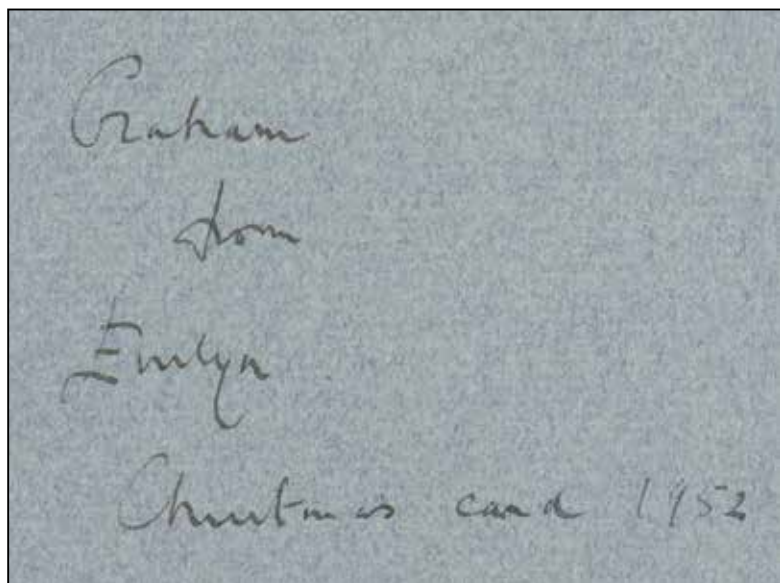 Graham
from
Evelyn
Christmas card 1952